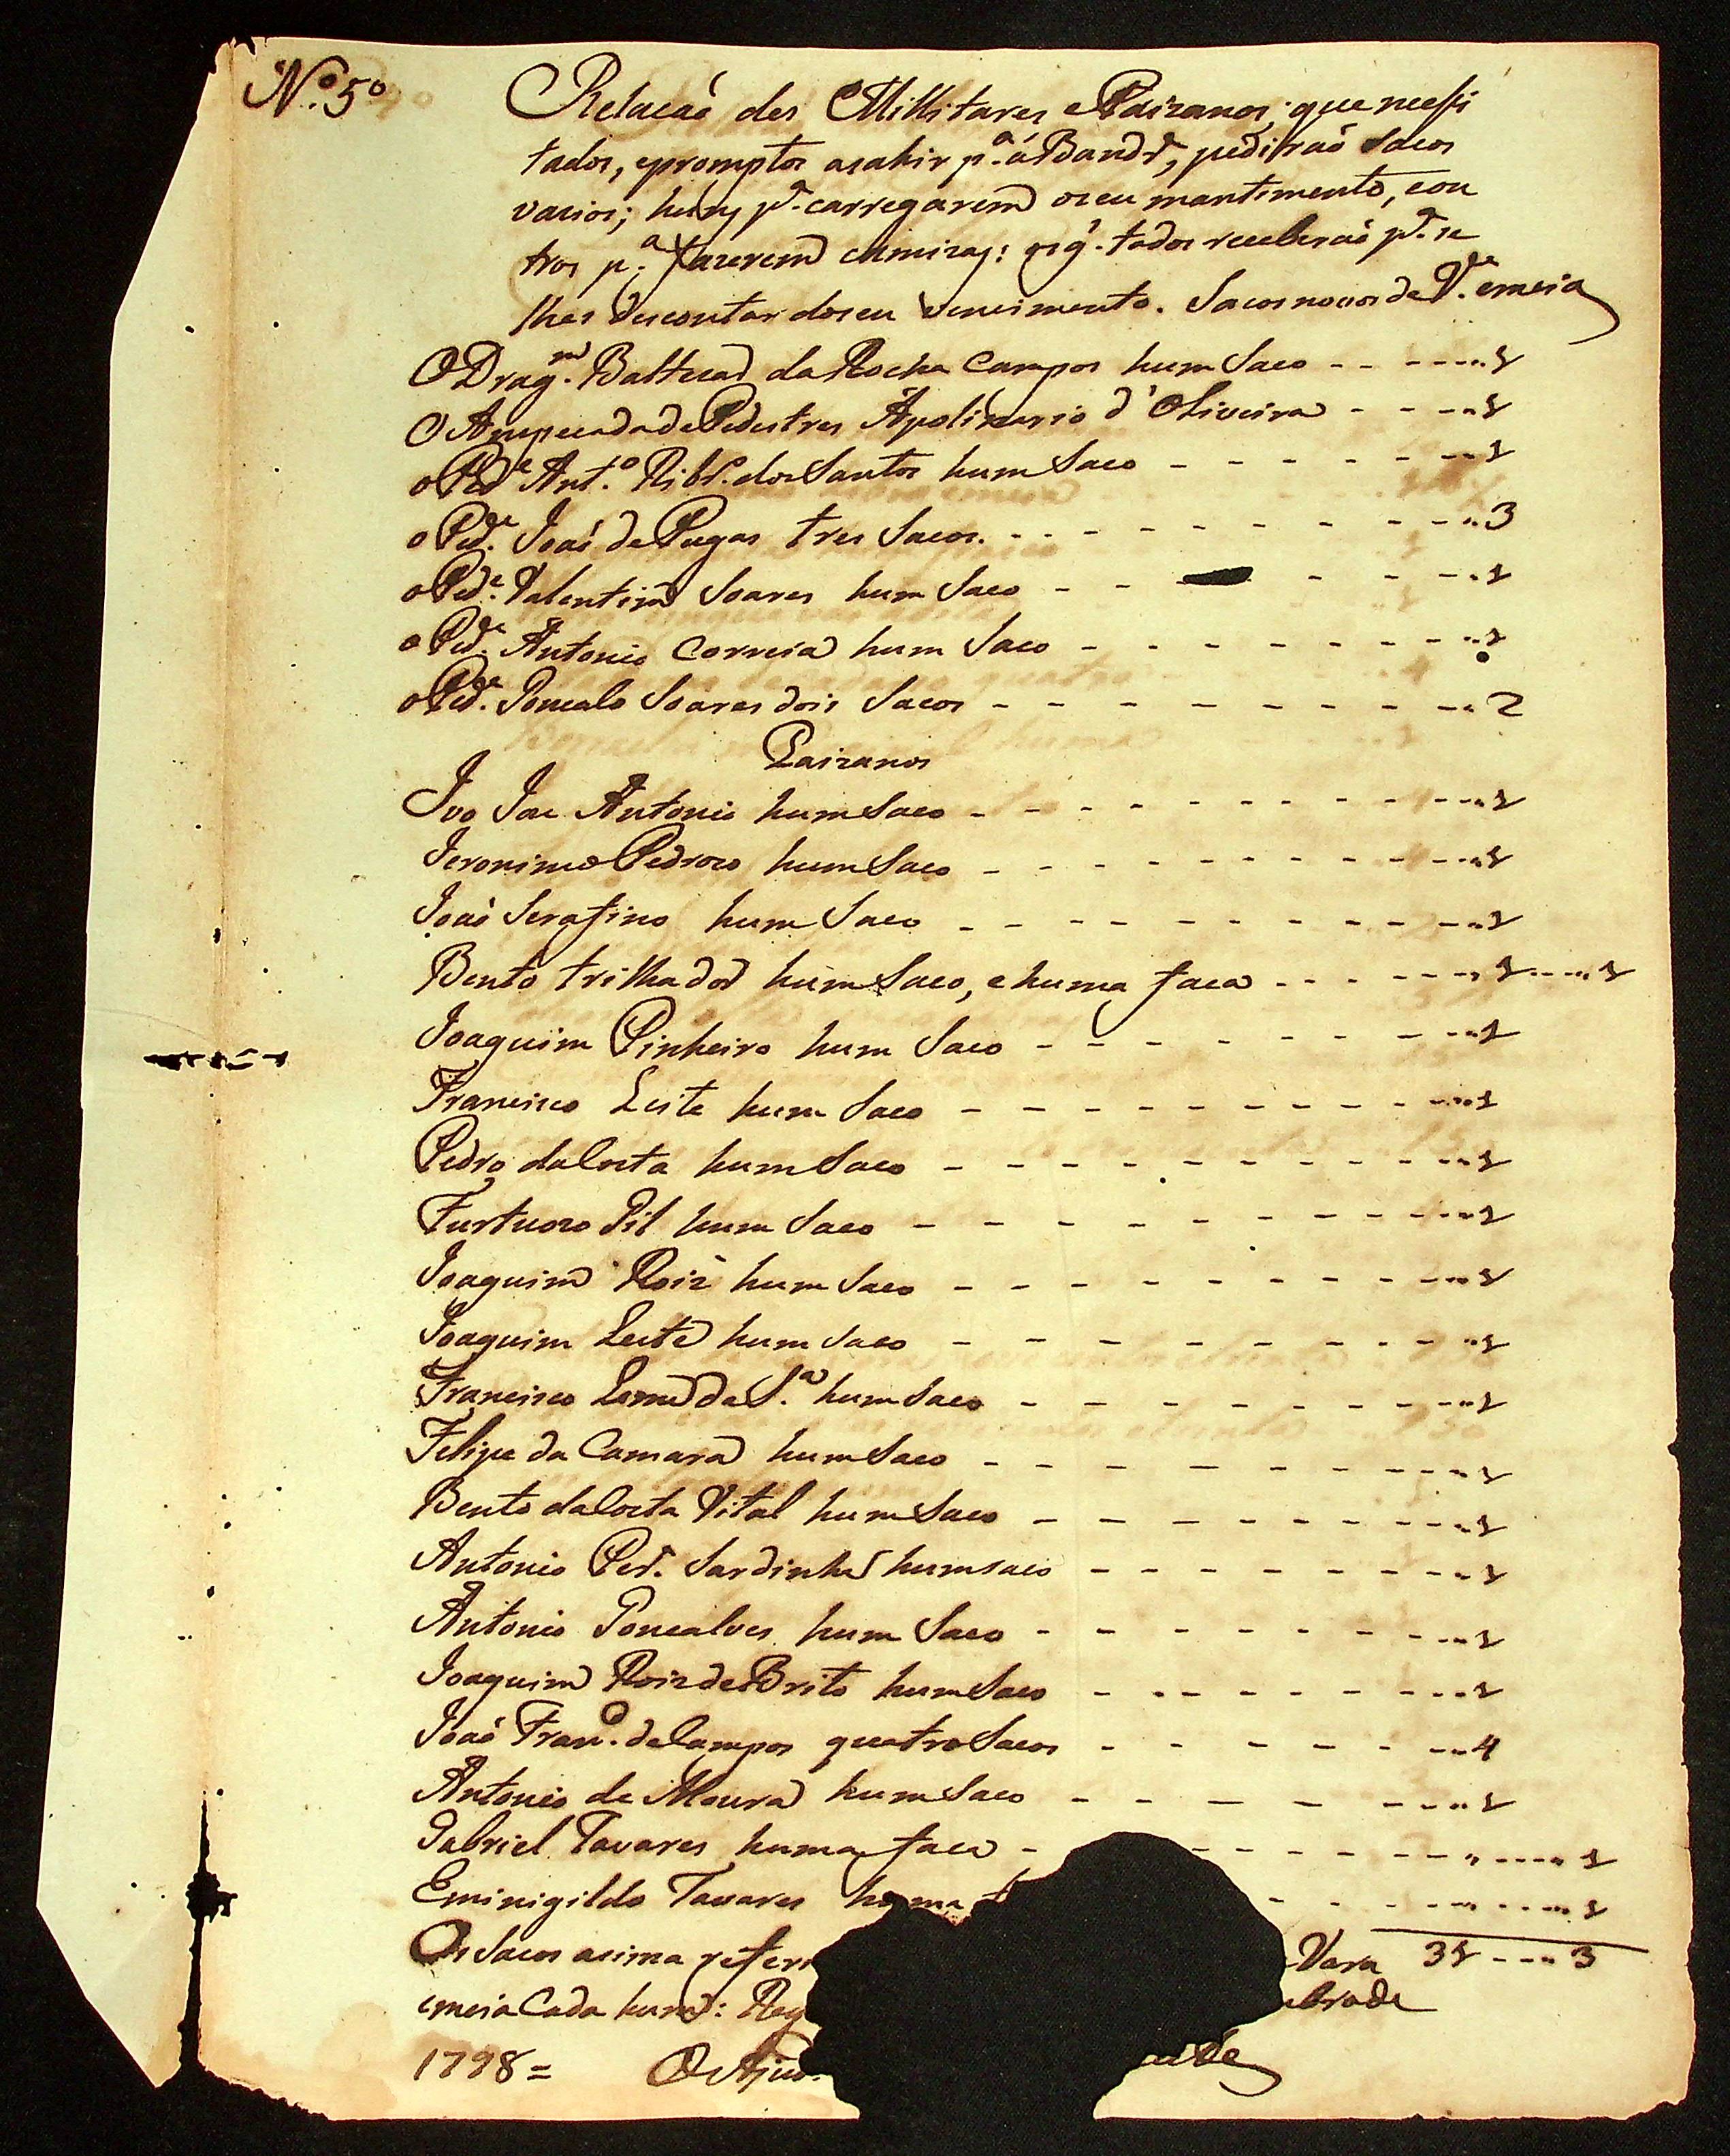 N.o 5o
Relacaõ dos Millitares e Paizanos, que necessi
tados, e promptos a sahir p.a a Bandr.a, pedirão Sacos
vasios; huns p.a carregarem o seu mantimento, e ou
tros p.a fazerem camizas: os q. todos receberaõ p.a se
lhes descontar do seu vencimento. Sacos novos de V.a e meia
O Drag.m Baltezar da Rocha Campos hum Saco 1
O Anspecada de Pedestres Apolinario d'Oliveira 1
o Ped.e Ant.o Ribr.o dos Santos hum Saco 1
o Ped.e Joaõ de Pugas tres Sacos. 3
o Ped.e Valentim Soares hum Saco 1
o Ped.e Antonio Correia hum Saco 1
o Ped.e Goncalo Soares dois Sacos 2
Paizanos
Ivo Joze Antonio hum Saco 1
Jeronimo Pedrozo hum Saco 1
Joaõ Serafino hum Saco 1
Bento trilhador hum Saco, e huma faca 1 1
Joaquim Pinheiro hum Saco 1
Francisco Leite hum Saco 1
Pedro da Costa hum Saco 1
Furtuozo Gil hum Saco 1
Joaquim Roiz hum Saco 1
Joaquim Leite hum Saco 1
Francisco Leme da S.a hum Saco 1
Felipe da Camara hum Saco 1
Bento da Costa Vital hum Saco 1
Antonio Per.a Sardinha hum saco 1
Antonio Goncalves hum Saco 1
Joaquim Roiz de Brito hum Saco 1
Joaõ Fran.co de Campos quatro Sacos 4
Antonio de Moura hum Saco 1
Gabriel Tavares huma faca 1
Eminigildo Tavares huma f 1
Os Sacos acima refer Vara 31 3
e meia Cada hum: Reg mbro de
1798=